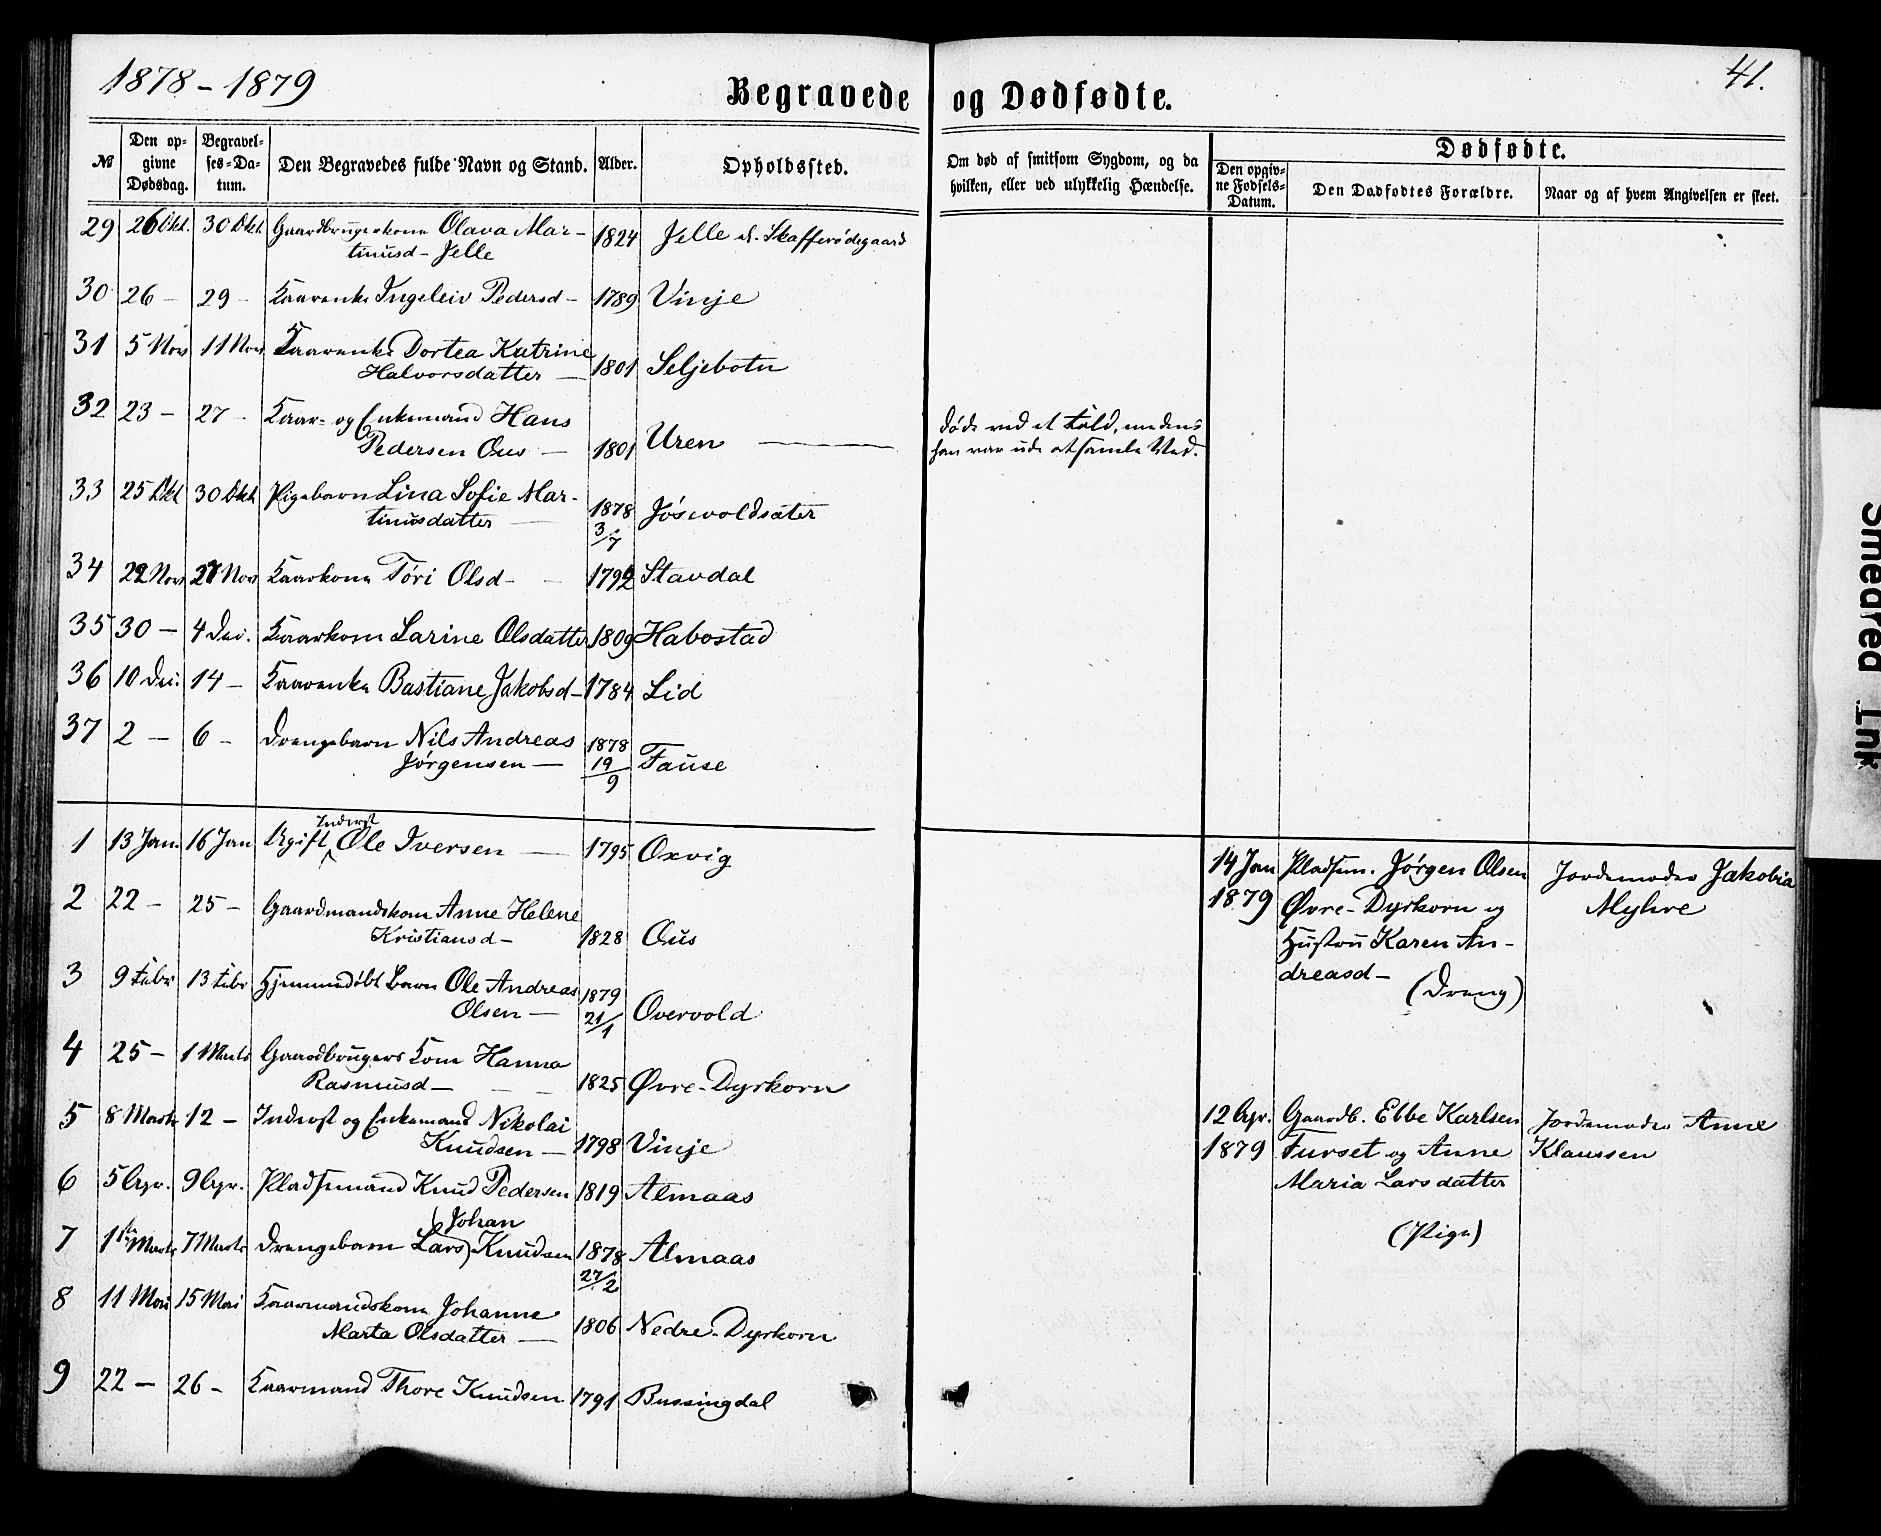 1878 - 1879
Begravede og Dødfødte.
41.
№ Den opgivne Dødsdag. Begravelses-Datum. Den Begravedes fulde Navn og Stand. Alder. Opholdssted. Om død af smitsom Sygdom, og da hvilken, eller ved ulykkelig Hændelse.
Dødfødte.
Den opgivne Fødsels-Datum. Den Dødfødtes Forældre. Naar og af hvem Angivelsen er skeet.
29 26 Okt. 30 Okt Gaardbrugerkone Olava Mar- 1824 Jelle Skafferødegaard
tinusd - Jelle
30 26 - 29 - Kaarenke Ingeleiv Pedersd - 1789 Vinje
31 5 Nov 11 Nov Kaarenke Dortea Katrine
Halvorsdatter - 1801 Seljebotn
32 23 - 27 - Kaar- og Enkemand Hans
Pedersen Ous - 1801 Uren
Døde ved et Fald, medens
han var ude at samle Ved.
33 25 Okt 30 Okt Pigebarn Lina Sofie Mar-
tinusdatter 1878 3/7 Jøsevoldsæter
34 22 Nov 27 Nov Kaarkone Tóri Olsd - 1792 Stavdal
35 30 - 4 Dec. Kaarkone Larine Olsdatter 1809 Habostad
36 10 Dec. 14 - Kaarenke Bastiane Jakobsd - 1784 Lid
37 2 - 6 - Drengebarn Nils Andreas
Jørgensen - 1878 19/9 Fause
1 13 Jan. 16 Jan Ugift Inderst Ole Iversen 1795 Oxvig
2 22 - 25 - Gaardmandskone Anne Helene
Kristiansd - 1828 Ous
3 9 Febr 13 Febr Hjemmedøbt Barn Ole Andreas
Olsen - 1879 21/1 Overvold
4 25 - 1 Marts Gaardbrugers Kone Hanna
Rasmusd - 1825 Øvre-Dyrkorn
5 8 Marts 12 - Inderst og Enkemand Nikolai
Knudsen - 1798 Vinje
6 5 Apr. 9 Apr. Pladsemand Knud Pedersen 1819 Almaas
7 1ste Marts 7 Marts Drengebarn Lars Johan Knudsen 1878 27/2 Almaas
8 11 Mai 15 Mai Kaarmandskone Johanne
Marta Olsdatter - 1806 Nedre-Dyrkorn
9 22 - 26 - Kaarmand Thore Knudsen 1791 Bussingdal
14 Jan Pladsem. Jørgen Olsen Jordemoder Jakobia
1879 Øvre-Dyrkorn og Myhre
Hustru Karen An-
dreasd -
(Dreng)
12 Apr. Gaardb. Ebbe Karlsen Jordemoder Anne
1879 Furset og Anne Klaussen
Maria Larsdatter
(Pige)
Smeared Ink